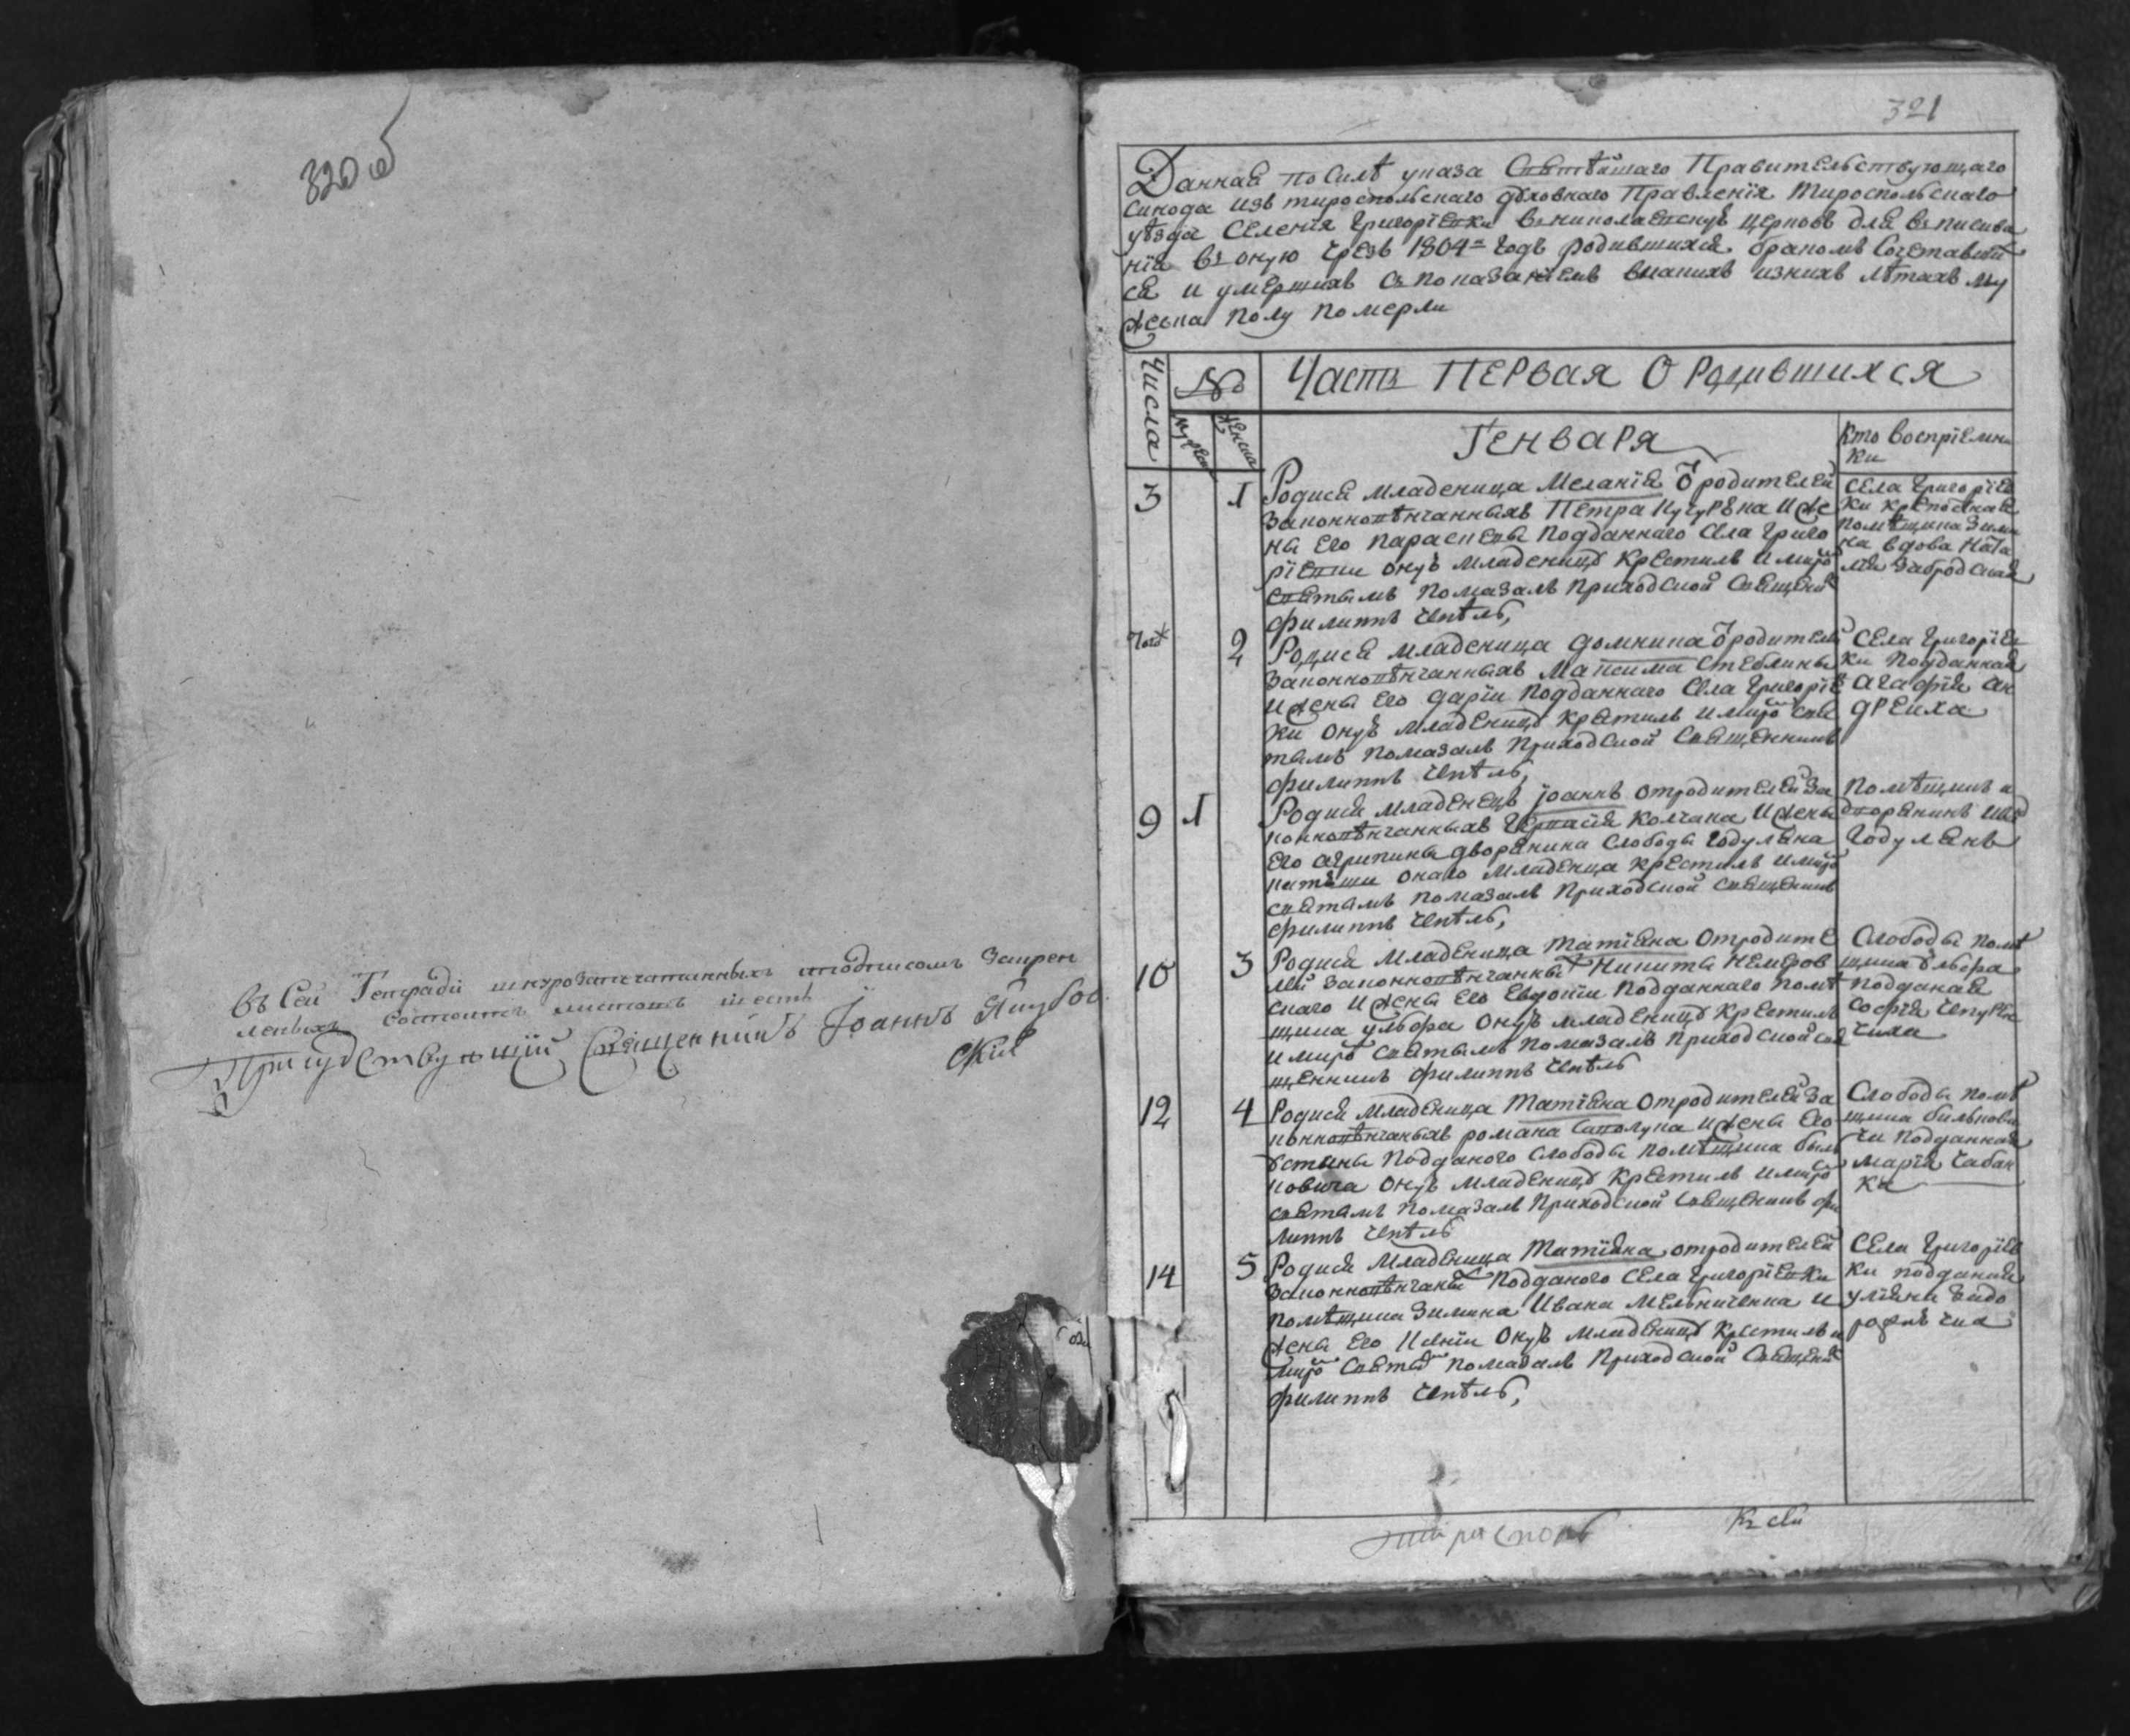 320 об
Въ Сей Тетради шнурозапечатанныхъ иподписомъ Закреп
ленныхъ состоитъ листовъ шесть
Присудствующій Священникъ Іоаннъ
скій
321
Данная по Силѣ указа Святѣйшаго Правительствующаго
Синода изъ тироспольскаго духовнаго Правленія Тироспольскаго
уѣзда Селенія Григоріевки въ николаевскую церковь для вписива
нія въ оную чрезъ 1804 годъ родившихся бракомъ Сочетавших
ся и умершихъ съ показаніемъ въ изнихъ лѣтахъ му
жеска полу померли
Числа
№
Часть ПЕРВая О Родившихся
мужеска
женска
Генваря
Кто воспріемни
ки
3
1
Родися младеница Меланія Ѿ родителей
законновѣнчанныхъ Петра и же
ны его параскевы Подданнаго Села Григо
ріевки оную младеницу крестилъ и миро
святымъ помазалъ Приходской Священник
филиппъ
Села Григоріев
ки крепостная
помѣщика Зими
на вдова Ната
лія Забродская
того ж
2
Родися младеница домникия Ѿ родителей
законновѣнчанныхъ Максима
и жены его даріи подданнаго Села Григоріев
ки оную младеницу крестилъ и миро свя
тымъ помазалъ Приходской Священникъ
филиппъ
Села Григоріев
ки Подданная
Агафія ан
дреиха
9
1
Родися младенецъ іоаннъ отродителей за
конновѣнчанныхъ Колчака и жены
его агрипины дворянина Слободы Годуляна
онаго младенца крестилъ и миро
святымъ помазалъ Приходской священникъ
филиппъ
Помѣщикъ и
дворянинъ
Годулянъ
10
3
Родися Младеница Татіяна отродите
лей законновѣнчаны Никиты Немиров
скаго и жены его Евдокіи Подданнаго помѣ
щика оную младеницу крестилъ
и миро святымъ помазалъ приходской свя
щенникъ филиппъ
Слободы помѣ
щика
подданая
софія
12
4
Родися младеница Татіяна отродителей за
конновѣнчаныхъ романа и жены его
устины подданого слободы помѣщика биль
ковича оную младеницу крестилъ и миро
святымъ помазалъ Приходской Священникъ фи
липпъ
Слободы помѣ
щика билькови
ча подданная
марія чабан
ка
14
5
Родися Младеница Татіяна отродителей
законновѣнчаны подданого Села Григоріевки
помѣщика Зимина Ивана Мельниченка и
жены его оную младеницу крестилъ и
миро святы помазалъ Приходской Священник
филиппъ
Села Григоріев
ки подданая
уліяна